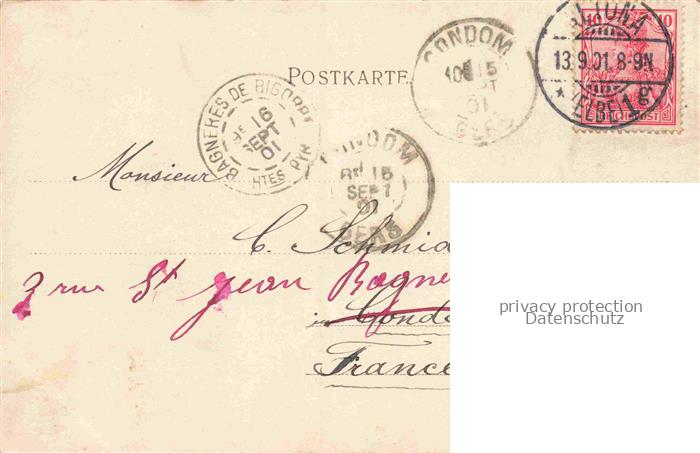 POSTKARTE
ALTONA
13.9.01.8-9N
* (ELBE) 1g
10 10
REICHSPOST
CONDOM
15
01
GERS
BAGNERES DE BIGORRE
16
SEPT
01
HTES PYR
CONDOM
15
SEPT
GERS
Monsieur
C. Schmid
2 rue St Jean Bagne
in Condo
France
privacy protection
Datenschutz